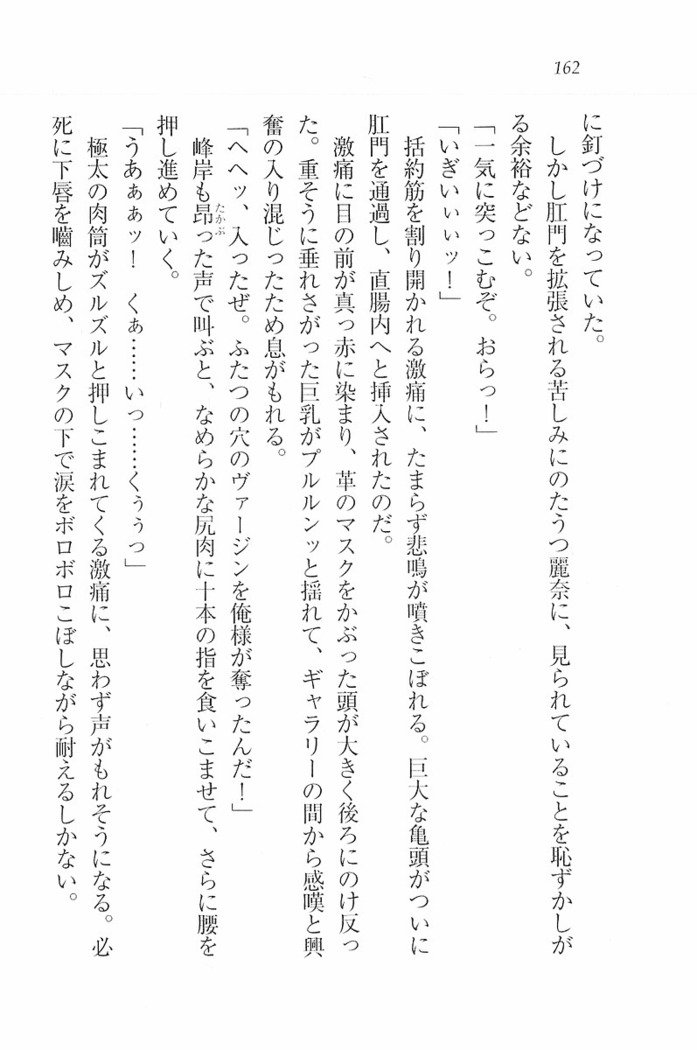 162
に釘づけになっていた。
しかし肛門を拡張される苦しみにのたうつ麗奈に、見られていることを恥ずかしが
る余裕などない。
「一気に突っこむぞ。おらっ！」
「いぎいぃぃッ！」
括約筋を割り開かれる激痛に、たまらず悲鳴が噴きこぼれる。巨大な亀頭がついに
肛門を通過し、直腸内へと挿入されたのだ。
激痛に目の前が真っ赤に染まり、革のマスクをかぶった頭が大きく後ろにのけ反っ
た。重そうに垂れさがった巨乳がプルルンッと揺れて、ギャラリーの間から感嘆と興
奮の入り混じったため息がもれる。
「へヘッ、入ったぜ。ふたつの穴のヴァージンを俺様が奪ったんだ！」
峰岸も昂たかぶった声で叫ぶと、なめらかな尻肉に十本の指を食いこませて、さらに腰を
押し進めていく。
「うあぁぁッ！　くぁ……いっ……くぅぅっ」
極太の肉筒がズルズルと押しこまれてくる激痛に、思わず声がもれそうになる。必
死に下唇を嚙みしめ、マスクの下で涙をボロボロこぼしながら耐えるしかない。